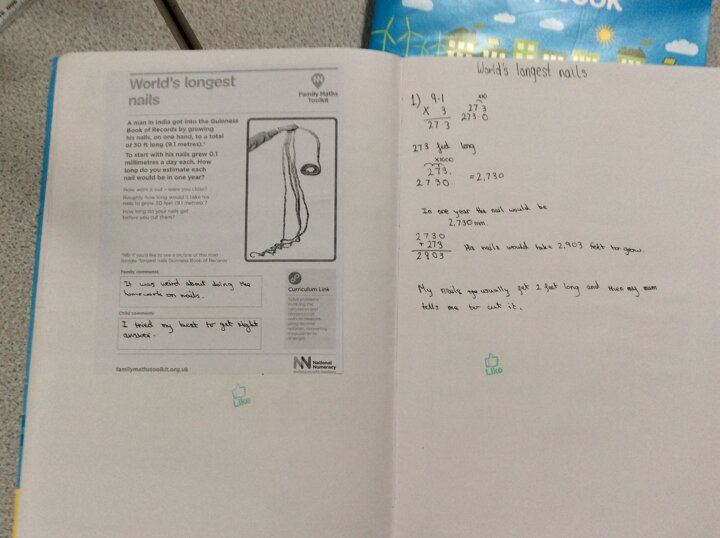 BOOK
World's longest
nails
Family Maths
Toolkit
A man in India got into the Guinness
Book of Records by growing
his nails, on one hand, to a total
of 30 ft long (9.1 metres).*
To start with his nails grew 0.1
millimetres a day each. How
long do you estimate each
nail would be in one year?
How did you work it out – were you close?
Roughly how long would it take his
nails to grow 30 feet (9.1 metres)?
How long do your nails get
before you cut them?
*NB: If you'd like to see a picture of this man
Google 'longest nails Guinness Book of Records'
Family comments
It was weird about doing the
homework on nails.
Child comments
I tried my best to get right
answer.
Curriculum Link
familymathstoolkit.org.uk
National
Numeracy
Like
World's longest nails
1) 9.1
x 3
27.3
x10
27.3
273.0
273 feet long
x1000
273.
2730.
= 2,730
In one year the nail would be
2,730mm.
2730
+ 273
2903
His nails would take 2,903 feet to grow.
My nails usually get 2 feet long and then my mum
tells me to cut it.
Like